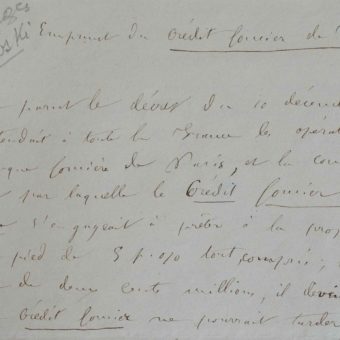 Emprunt du Crédit foncier de
parut le décret du 10 décem
tendait à toute la France les opérat
que foncière de Paris, et la con
par laquelle le Crédit foncier
s'engageait à prêter à la prop
pied de 5 p. 0/0 tout compris ;
de deux cents millions, il dev
Crédit foncier ne pourrait tarder